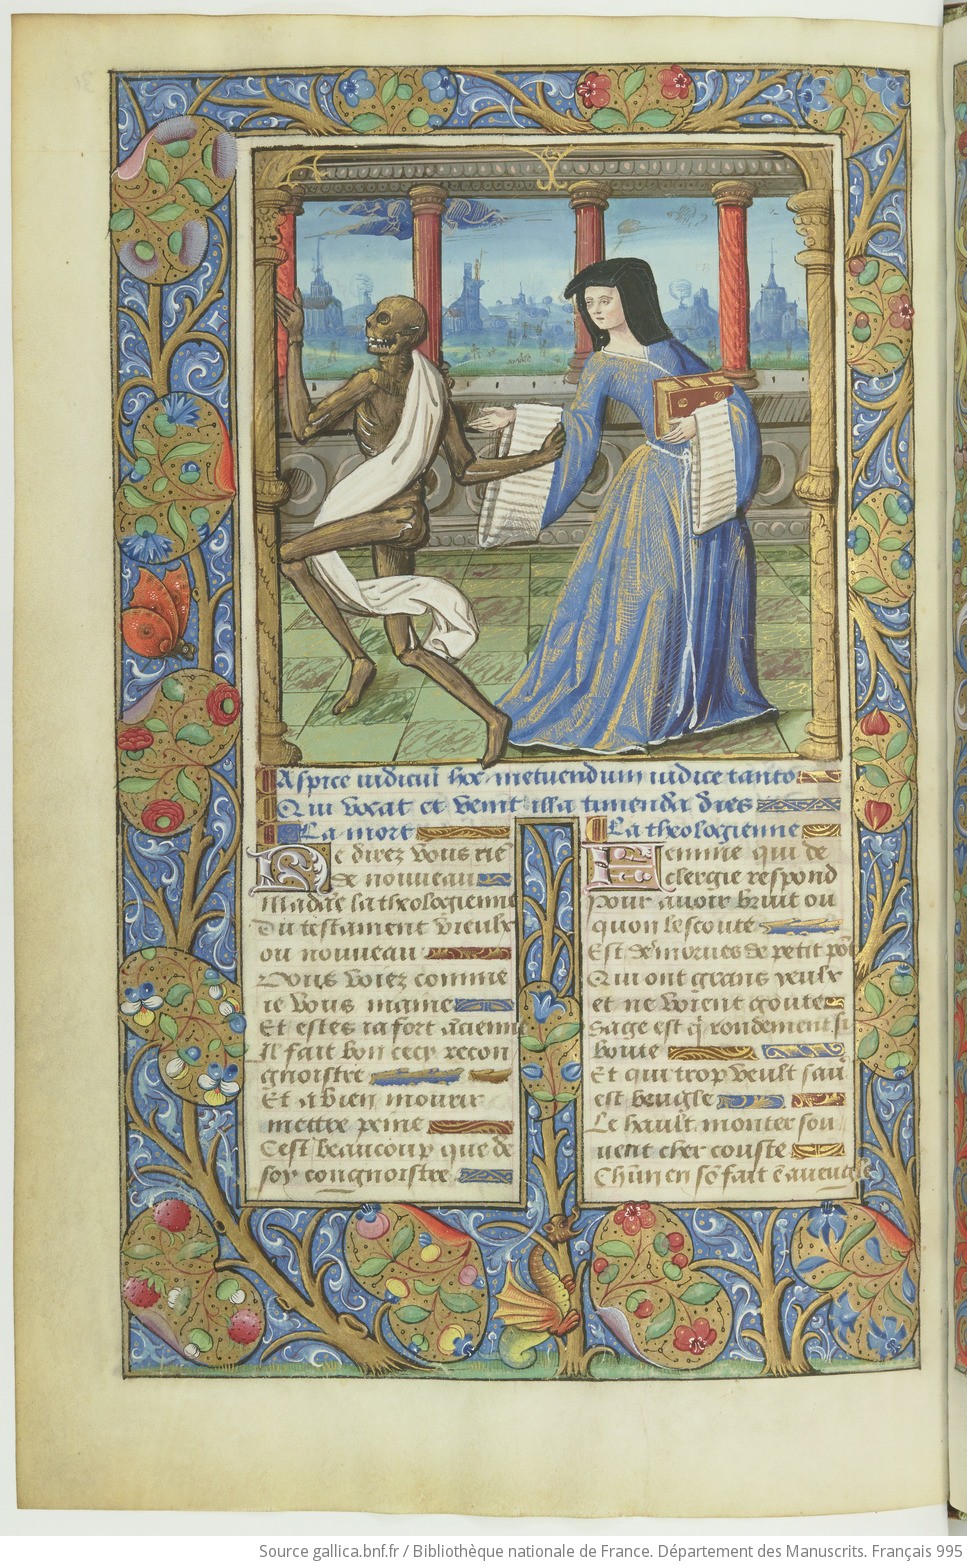 Aspice iudiciū hoc metuendum iudice tanto
Qui vocat et venit illa timenda dies
La mort
Ne direz vous riē
de nouueau
Madāe la theologienne
Du testament vieulx
ou nouueau
Vous voiez comme
ie vous maine
Et estes ia fort āciene
Il fait bon cecy recon
gnoistre
Et a bien mourir
mettre peine
Cest beaucoup que de
soy congnoistre
La theologienne
Femme qui de
clergie respond
Pour auoir bruit ou
quon lescoute
Est des morues de petit pōt
Qui ont grans yeulx
et ne voient goute
Sage est q̄ rondement si
boute
Et qui trop veult sauī
est beugle
Le hault monter sou
uent cher couste
Chūn en sō fait ē aveugle
Source gallica.bnf.fr / Bibliothèque nationale de France. Département des Manuscrits. Français 995